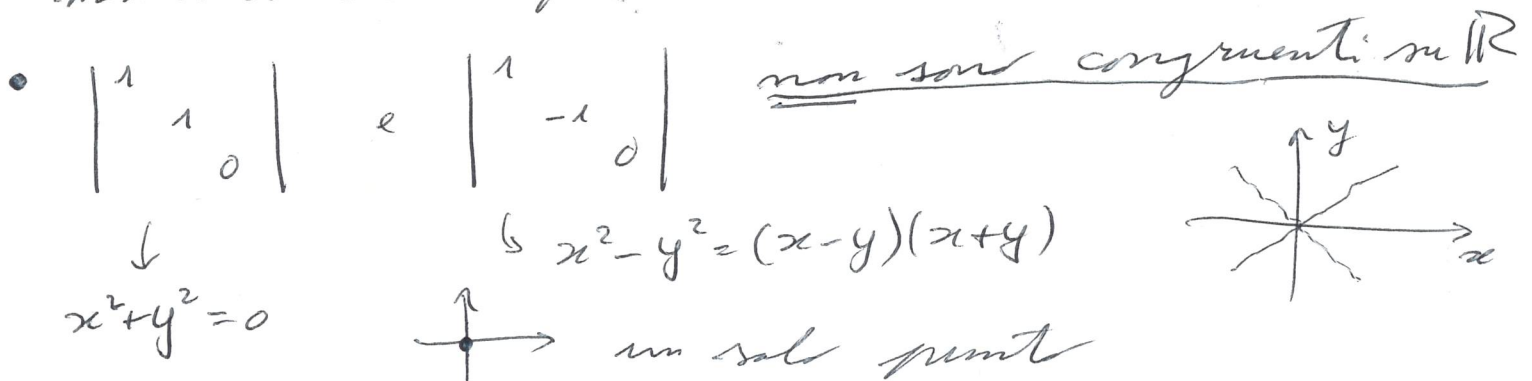 • | 1 1 0 | e | 1 -1 0 | non sono congruenti su ℝ
↓ ↳ x² - y² = (x-y)(x+y)
x² + y² = 0
un solo punt
y
x